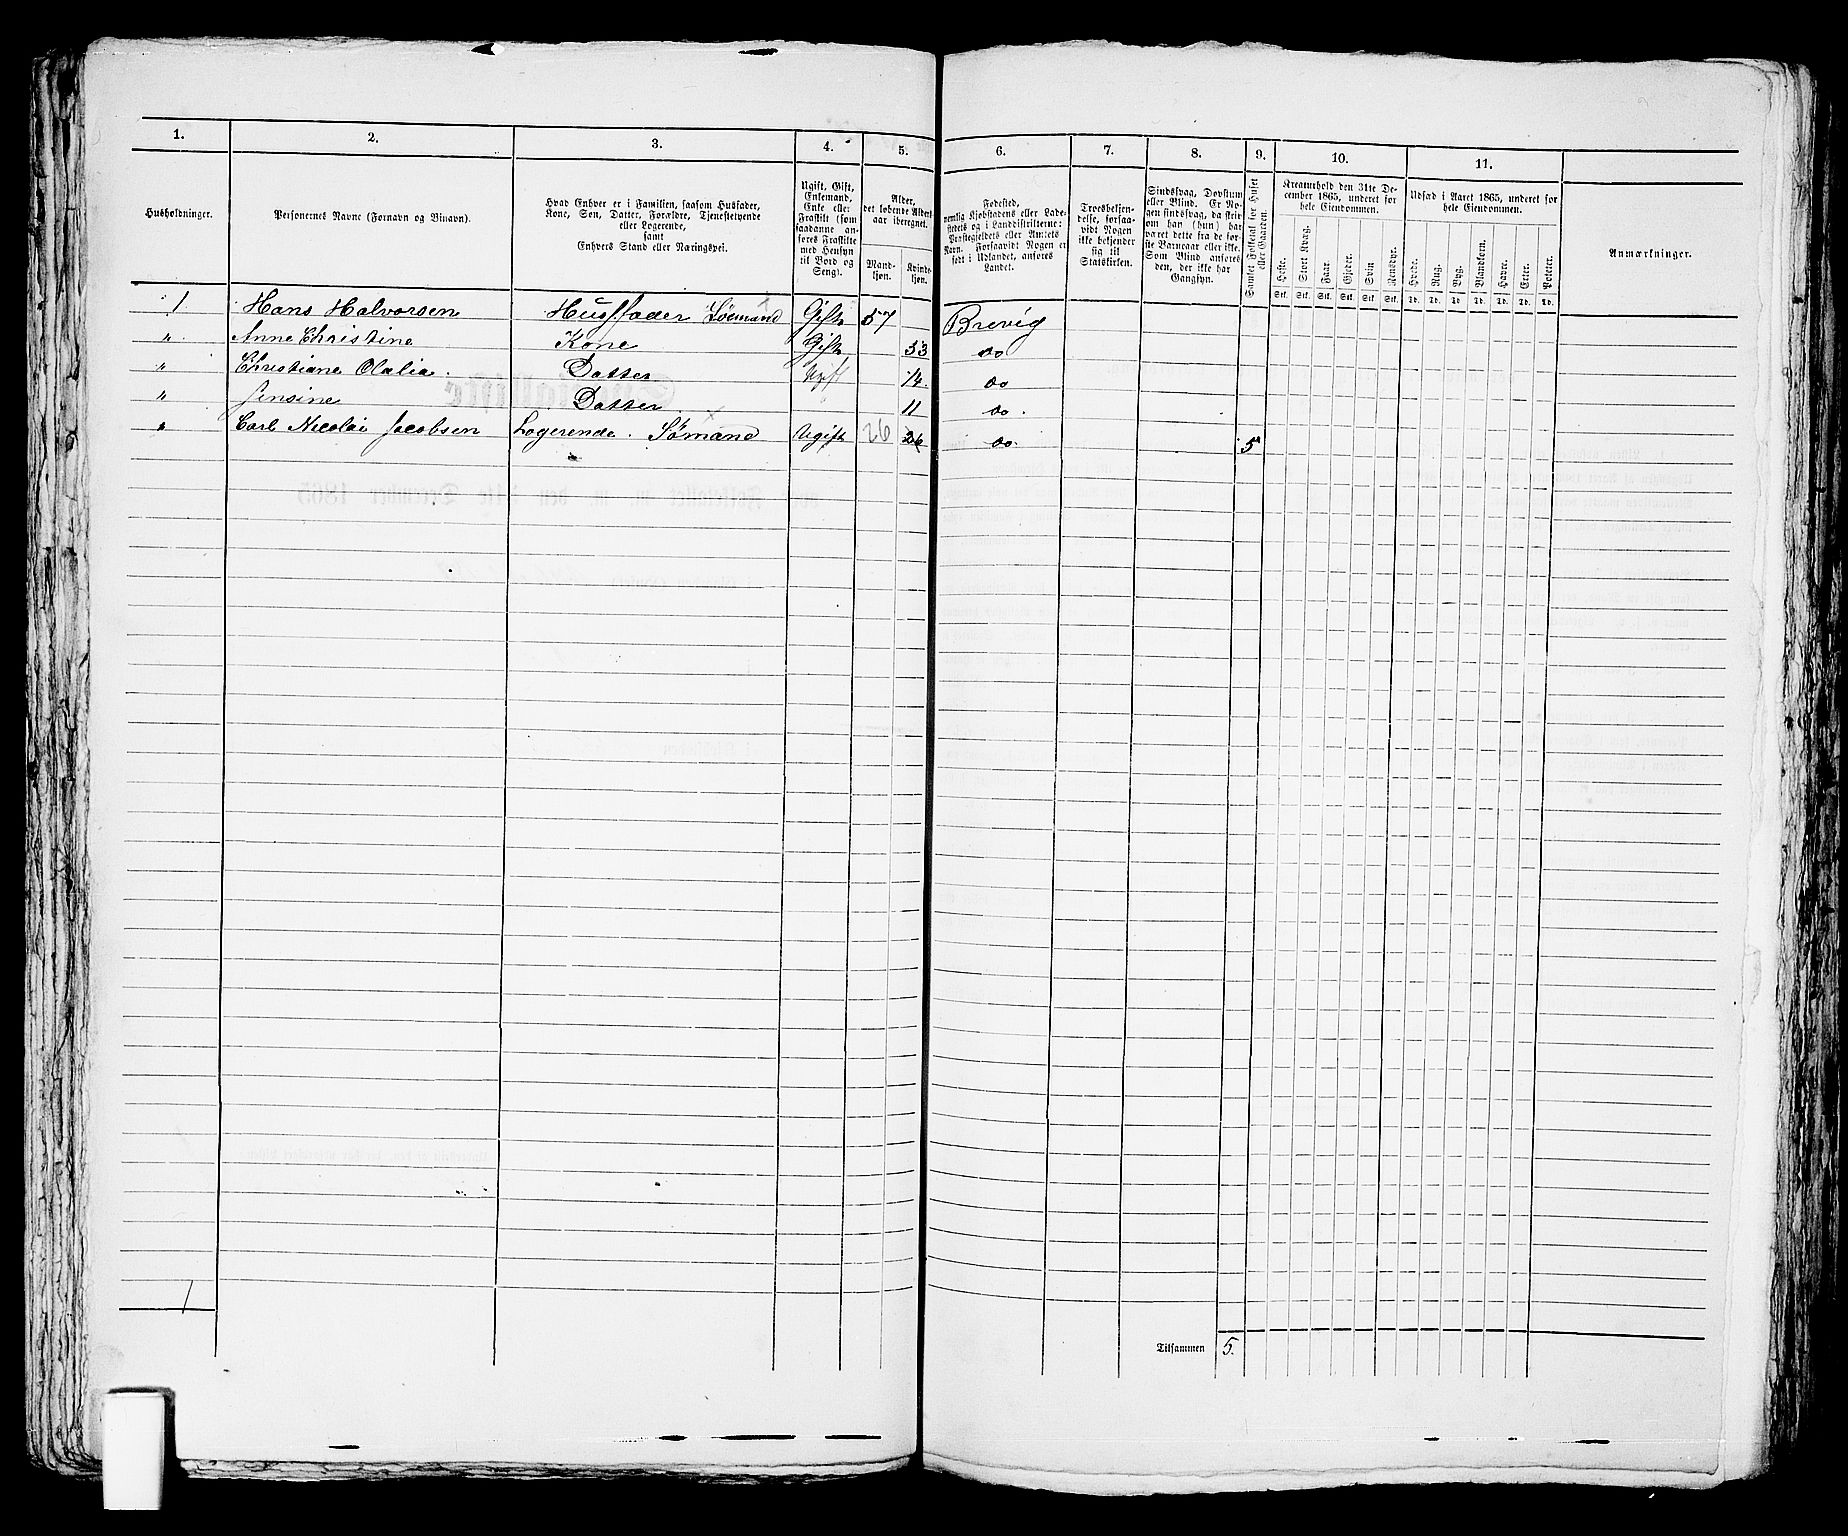 1. 2. 3. 4. 5. 6. 7. 8. 9. 10. 11.
Husholdninger.
Personernes Navne (Fornavn og Binavn).
Hvad Enhver er i Familien, saasom Husfader,
Kone, Søn, Datter, Forældre, Tjenestetyende
eller Logerende,
samt
Enhvers Stand eller Næringsvei.
Ugift, Gift,
Enkemand,
Enke eller
Fraskilt (som
saadanne an-
føres Fraskilte
med Hensyn
til Bord og
Seng).
Alder,
det løbende Alders-
aar iberegnet.
Mand-
kjøn.
Kvinde-
kjøn.
Fødested,
nemlig Kjøbstadens eller Lade-
stedets og i Landdistrikterne:
Præstegjeldets eller Amtets
Navn. Forsaavidt Nogen er
født i Udlandet, anføres
Landet.
Troesbekjen-
delse, forsaa-
vidt Nogen
ikke bekjender
sig til
Statskirken.
Sindssvag, Døvstum
eller Blind. Er No-
gen sindssvag, da skri-
ves om han (hun) har
været dette fra de før-
ste Barneaar eller ikke.
Som Blind anføres
den, der ikke har
Gangsyn.
Samlet Folketal for Huset
eller Gaarden.
Kreaturhold den 31te De-
cember 1865, underet for
hele Eiendommen.
Heste. Stort Kvæg. Faar. Gjeder. Svin. Rensdyr.
Stk. Stk. Stk. Stk. Stk. Stk.
Udsæd i Aaret 1865, underet for
hele Eiendommen.
Hvede. Rug. Byg. Blandkorn. Havre. Erter. Poteter.
Td. Td. Td. Td. Td. Td. Td.
Anmærkninger.
1 Hans Halvorsen Husfader Sømand Gift 57 Brevig
" Anne Christine Kone Gift 53 do
" Christiane Olalia. Datter Ugift 14. do
" Jensine Datter " 11 do.
" Carl Nicolai Jacobsen Logerende. Sømand Ugift 26 26 do. 5
1
Tilsammen 5.